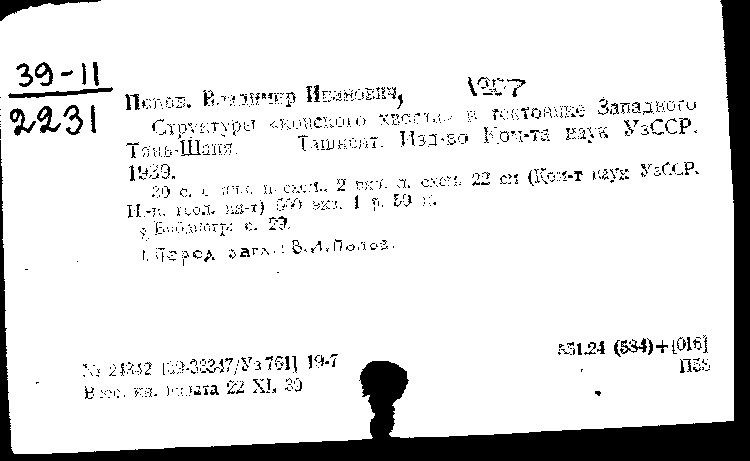 39-11
2231
Попов, Владимир Иванович, 1907
Структуры «конского хвоста» в тектонике Западного
Тянь-Шаня. Ташкент. Изд-во Ком-та наук УзССР.
1939.
30 с. с илл. и схем., 2 вкл. л. схем. 22 см (Ком-т наук УзССР.
Н.-и. геол. ин-т) 500 экз. 1 р. 50 к.
Библиогр: с. 29.
Перед загл.: В.И.Попов.
№ 24842 [39-32347/Уз 761] 19-7
Всес. кн. палата 22 XI. 39
551.24 (584)+[016]
П58